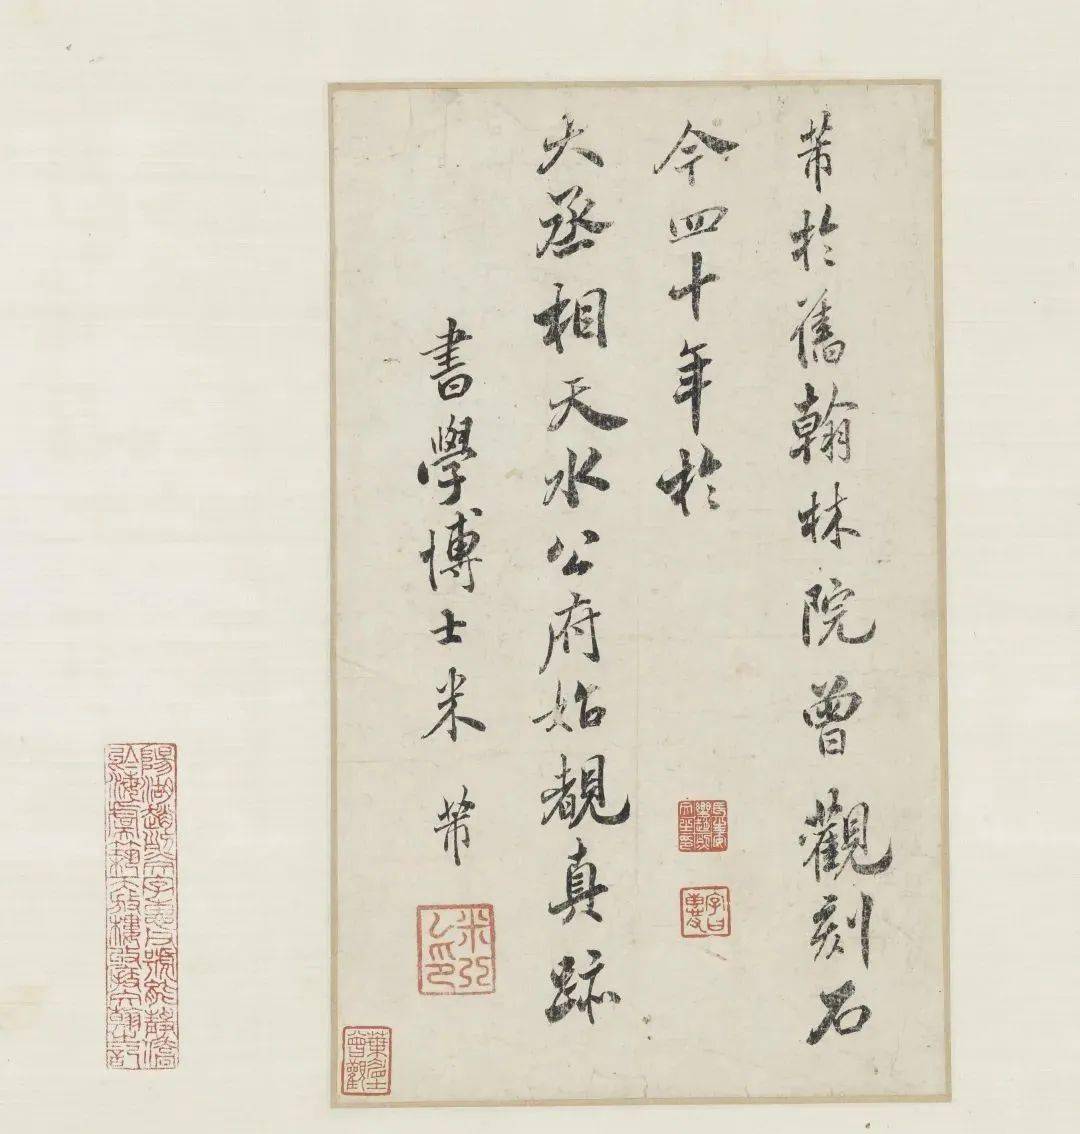 芾於舊翰林院曾觀刻石
今四十年於
大丞相天水公府始覩真跡
書學博士米芾